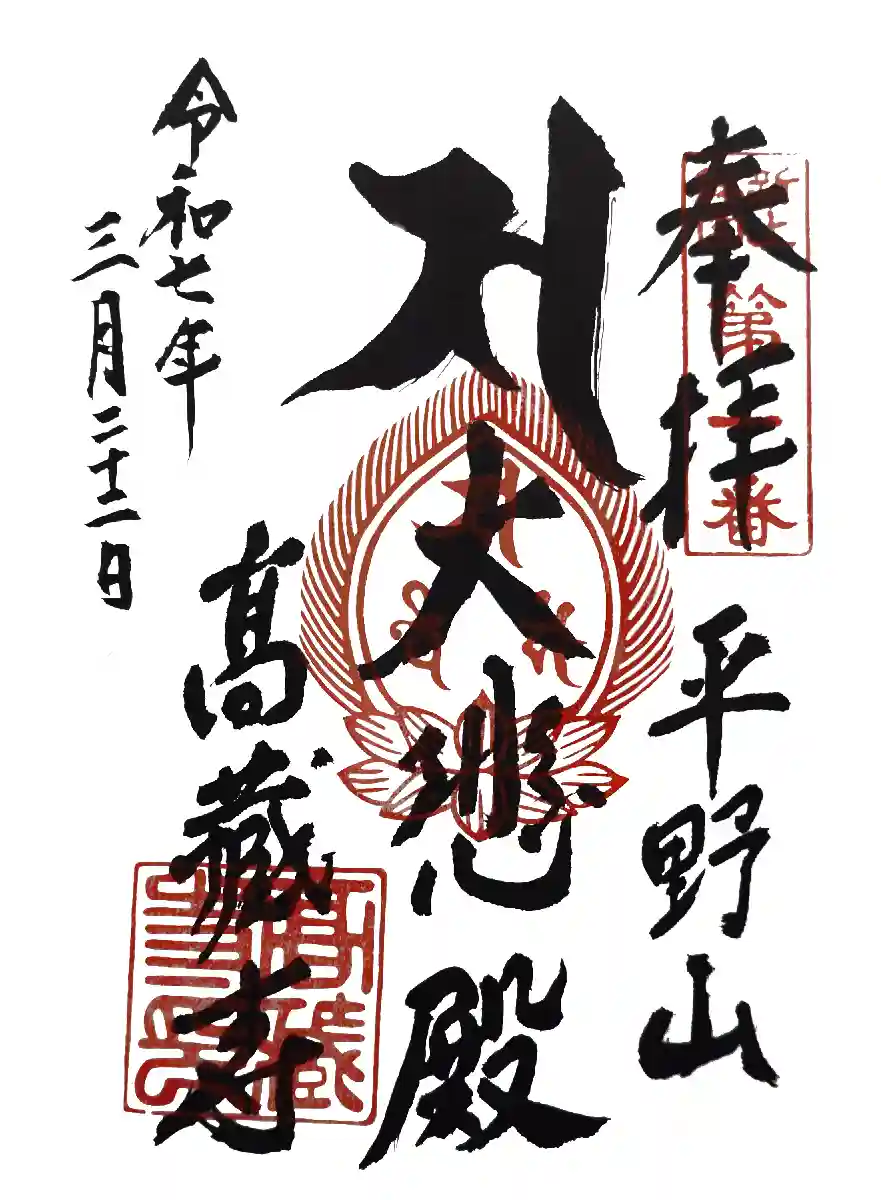 奉拝
平野山
𑖭
大悲殿
髙藏寺
令和七年
三月二十二日